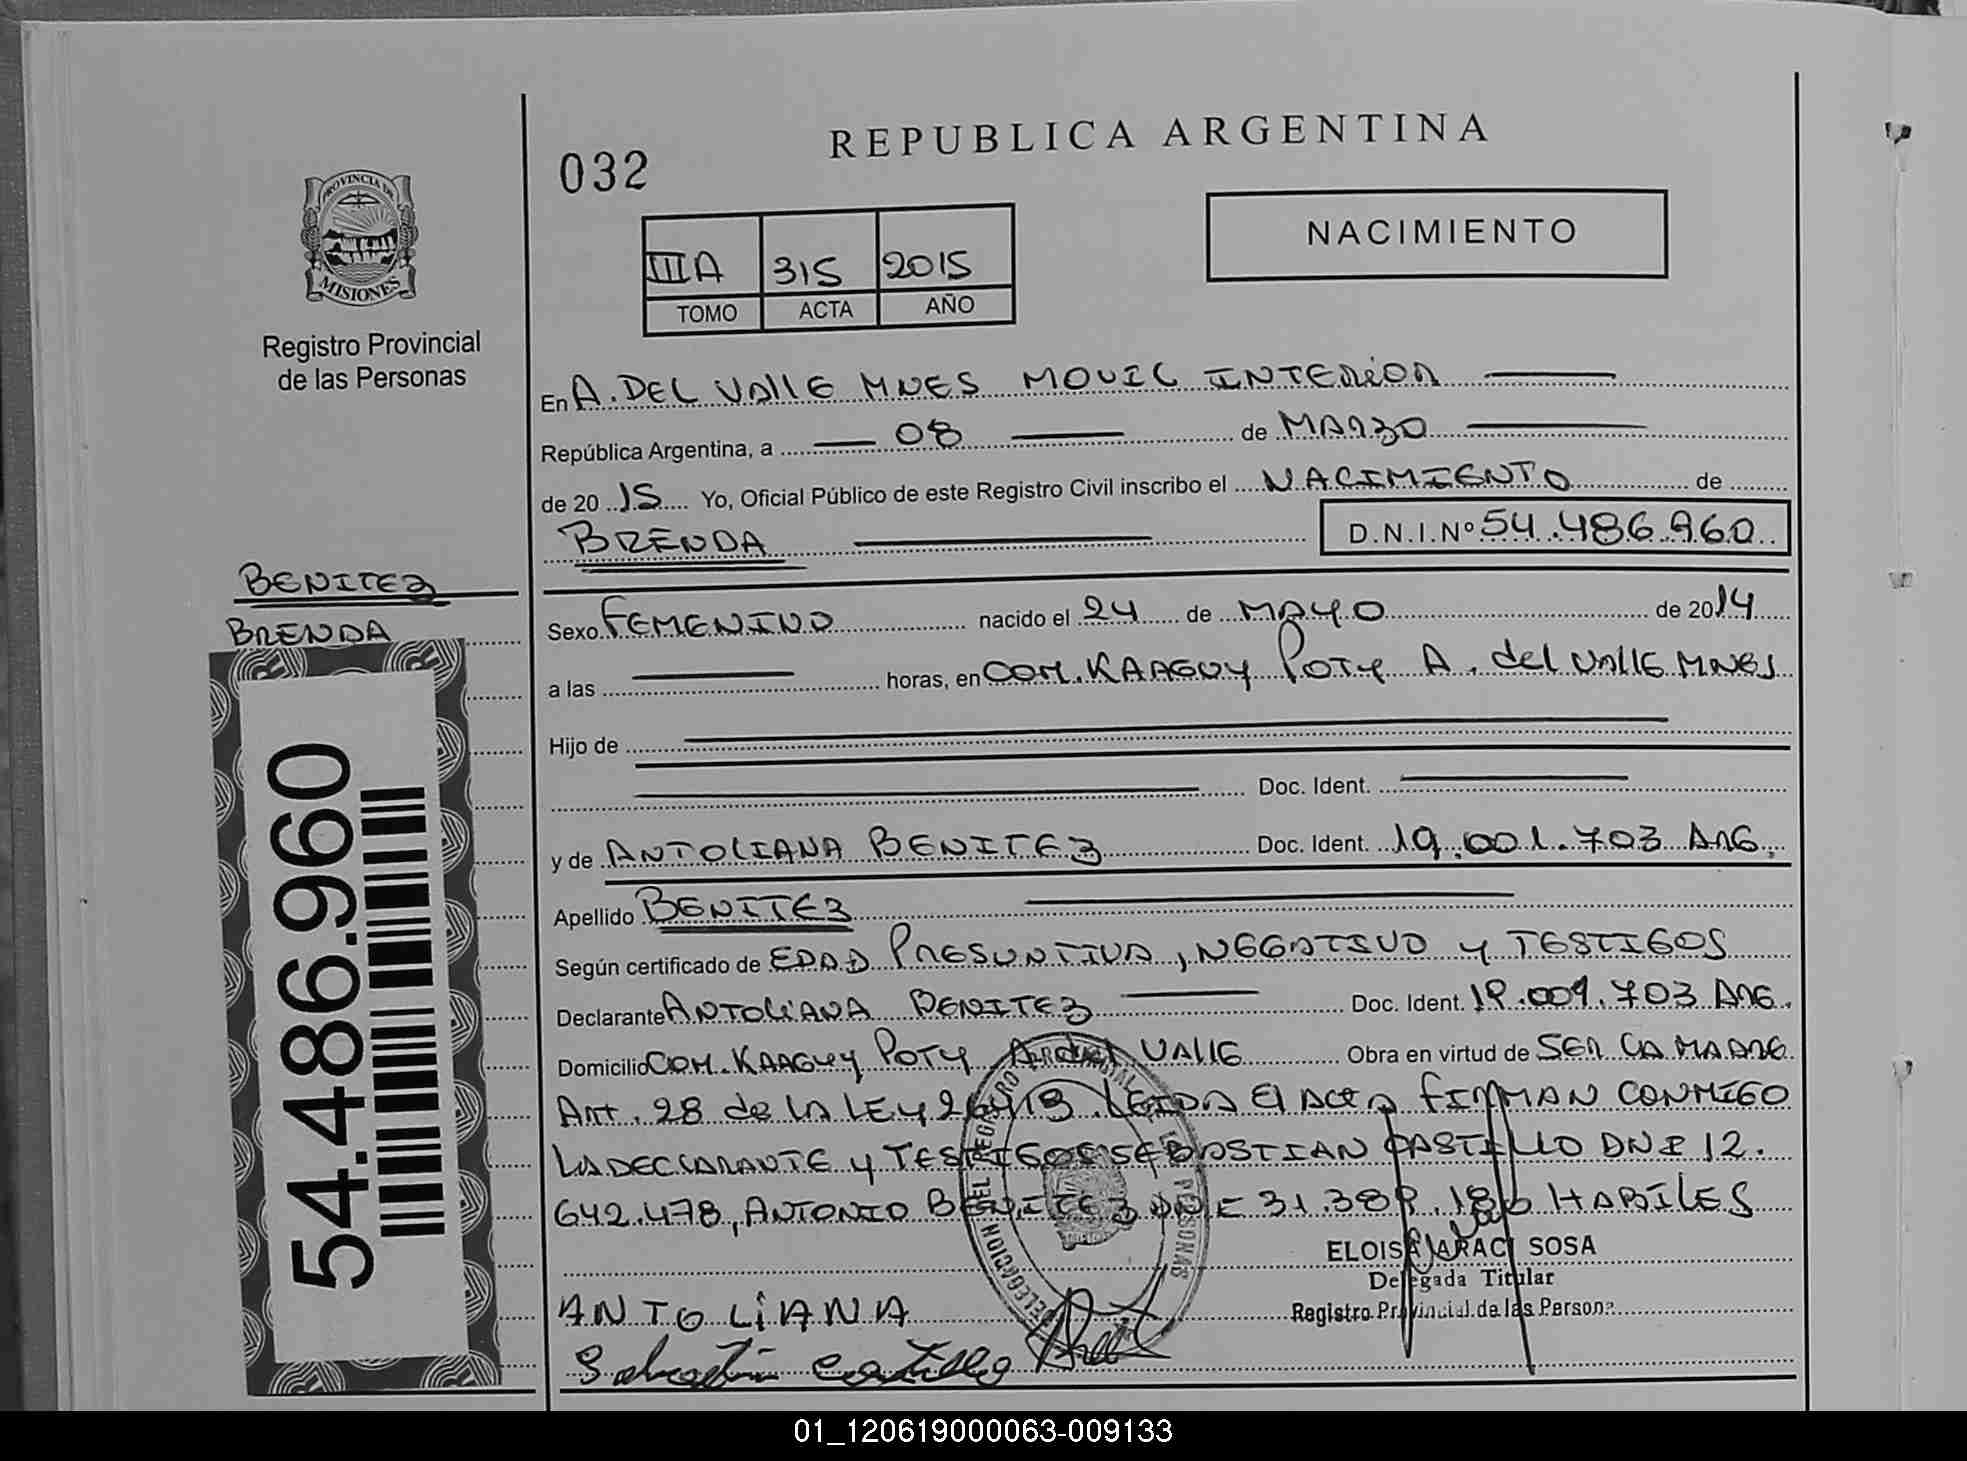 REPUBLICA ARGENTINA
032
NACIMIENTO
PROVINCIA DE
MISIONES
Registro Provincial
de las Personas
IIIA 315 2015
TOMO ACTA AÑO
En A. DEL VALLE MNES MOVIL INTERIOR
República Argentina, a 08 de MARZO
de 2015 Yo, Oficial Público de este Registro Civil inscribo el NACIMIENTO de
BRENDA D.N.I.Nº 54.486.960
BENITEZ
BRENDA
54.486.960
Sexo FEMENINO nacido el 24 de MAYO de 2014
a las horas, en COM. KAAGUY POTY A. del VALLE MNES
Hijo de
Doc. Ident.
y de ANTOLIANA BENITEZ Doc. Ident. 19.001.703 ARG.
Apellido BENITEZ
Según certificado de EDAD PRESUNTIVA, NEGATIVO y TESTIGOS
Declarante ANTOLIANA BENITEZ Doc. Ident. 19.001.703 ARG.
Domicilio COM. KAAGUY POTY A. del VALLE Obra en virtud de SER LA MADRE
Art. 28 de LA LEY 26413. LEIDA El ACTA FIRMAN CONMIGO
LA DECLARANTE y TESTIGOS SEBASTIAN CASTILLO DNI 12.
642.478, ANTONIO BENITEZ DNI 31.389.186 HABILES
DELEGACION DEL REGISTRO PROVINCIAL DE LAS PERSONAS
ELOISA ARACI SOSA
Delegada Titular
Registro Provincial de las Personas
ANTOLIANA
Sebastian Castillo
01_120619000063-009133